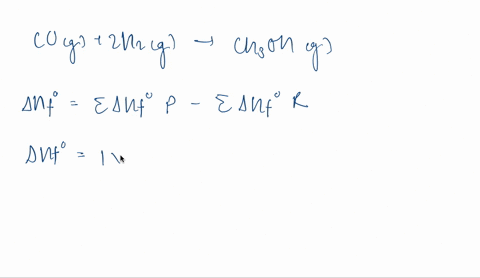 CO(g) + 2H₂(g) → CH₃OH(g)
ΔHf° = ΣΔHf° P - ΣΔHf° R
ΔHf° = 1x